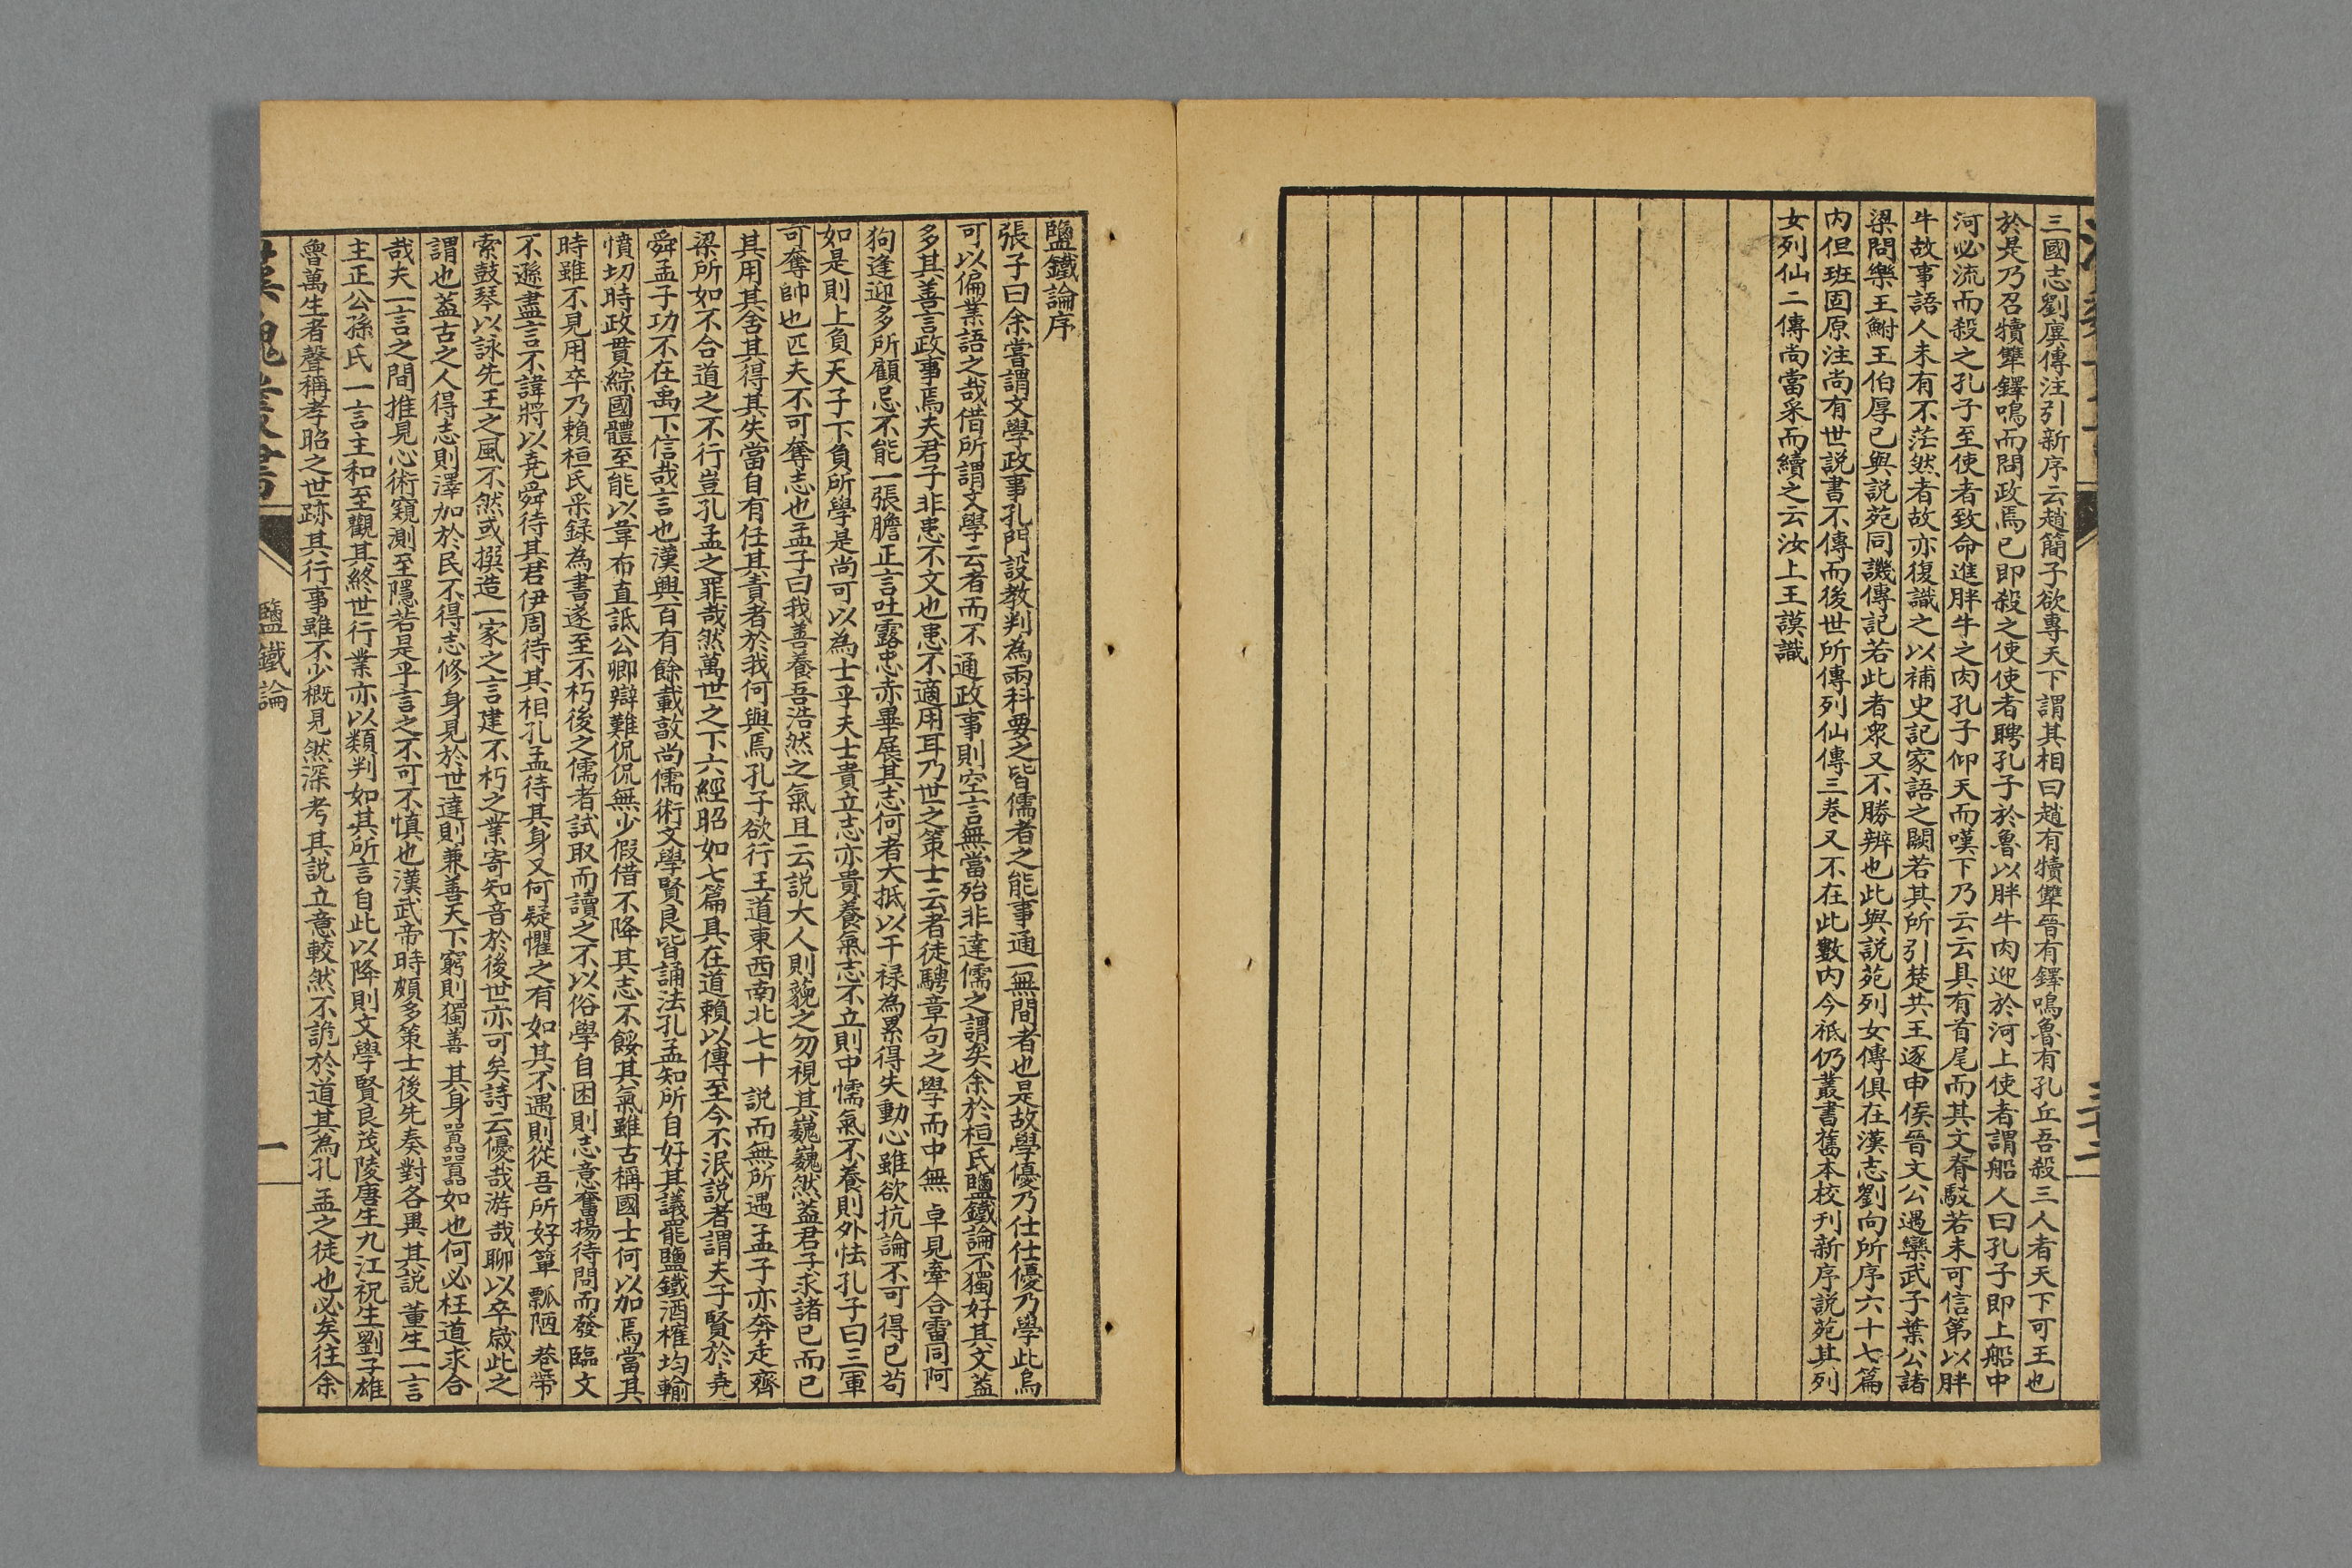 三國志劉廙傳注引新序云趙簡子欲專天下謂其相曰趙有犢犨晉有鐸鳴魯有孔丘吾殺三人者天下可王也
於是乃召犢犨鐸鳴而問政焉已即殺之使使者聘孔子於魯以胖牛肉迎於河上使者謂船人曰孔子即上船中
河必流而殺之孔子至使者致命進胖牛之肉孔子仰天而嘆下乃云云具有首尾而其文脊駁若未可信第以胖
牛故事語人未有不茫然者故亦復識之以補史記家語之闕若其所引楚共王逐申侯晉文公遇欒武子葉公諸
梁問樂王鮒王伯厚已與說苑同譏傳記若此者衆又不勝辨也此與說苑列女傳俱在漢志劉向所序六十七篇
內但班固原注尚有世説書不傳而後世所傳列仙傳三卷又不在此數內今祗仍叢書舊本校刊新序説苑其列
女列仙二傳尚當采而續之云汝上王謨識
鹽鐵論序
張子曰余嘗謂文學政事孔門設教判為兩科要之皆儒者之能事通一無間者也是故學優乃仕仕優乃學此烏
可以偏業語之哉借所謂文學云者而不通政事則空言無當殆非達儒之謂矣余於桓氏鹽鐵論不獨好其文益
多其善言政事焉夫君子非患不文也患不適用耳乃世之策士云者徒騁章句之學而中無卓見牽合雷同阿
狥逢迎多所顧忌不能一張膽正言吐露忠赤畢展其志何者大抵以干禄為累得失動心雖欲抗論不可得已苟
如是則上負天子下負所學是尚可以為士乎夫士貴立志亦貴養氣志不立則中懦氣不養則外怯孔子曰三軍
可奪帥也匹夫不可奪志也孟子曰我善養吾浩然之氣且云説大人則藐之勿視其巍巍然益君子求諸已而已
其用其舍其得其失當自有任其責者於我何與焉孔子欲行王道東西南北七十説而無所遇孟子亦奔走齊
梁所如不合道之不行豈孔孟之罪哉然萬世之下六經昭如七篇具在道賴以傳至今不泯説者謂夫子賢於堯
舜孟子功不在禹下信哉言也漢興百有餘載敦尚儒術文學賢良皆誦法孔孟知所自好其議罷鹽鐵酒榷均輸
憤切時政貫綜國體至能以韋布直詆公卿辯難侃侃無少假借不降其志不餒其氣雖古稱國士何以加焉當其
時雖不見用卒乃賴桓氏采録為書遂至不朽後之儒者試取而讀之不以俗學自困則志意奮揚待問而發臨文
不遜盡言不諱將以堯舜待其君伊周待其相孔孟待其身又何疑懼之有如其不遇則從吾所好簞瓢陋巷帶
索鼓琴以詠先王之風不然或撰造一家之言建不朽之業寄知音於後世亦可矣詩云優哉游哉聊以卒嵗此之
謂也蓋古之人得志則澤加於民不得志修身見於世達則兼善天下窮則獨善其身囂囂如也何必枉道求合
哉夫一言之間推見心術窺測至隱若是乎言之不可不慎也漢武帝時頗多策士後先奏對各異其説董生一言
主正公孫氏一言主和至觀其終世行業亦以類判如其所言自此以降則文學賢良茂陵唐生九江祝生劉子雄
魯萬生者聲稱孝昭之世跡其行事雖不少概見然深考其説立意較然不詭於道其為孔孟之徒也必矣往余
漢魏叢書
鹽鐵論
一